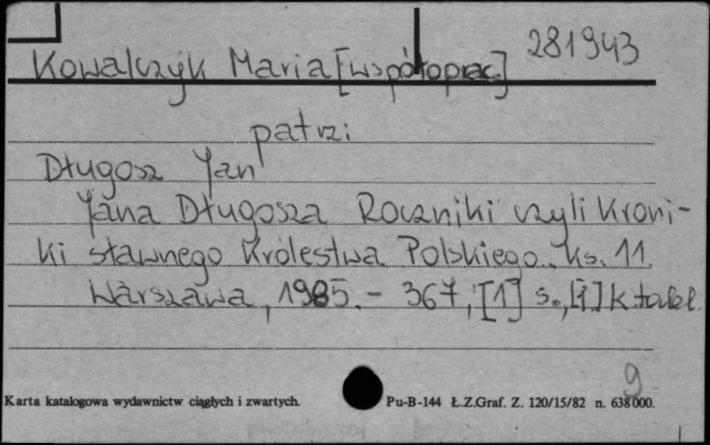 281943
Kowalczyk Maria [współoprac.]
patrz:
Długosz Jan
Jana Długosza Roczniki czyli Kroni-
ki sławnego Królestwa Polskiego. Ks. 11.
Warszawa, 1985. - 367, [1] s., [1] k. tabl.
9
Karta katalogowa wydawnictw ciągłych i zwartych. Pu-B-144 Ł.Z.Graf. Z. 120/15/82 n. 638 000.